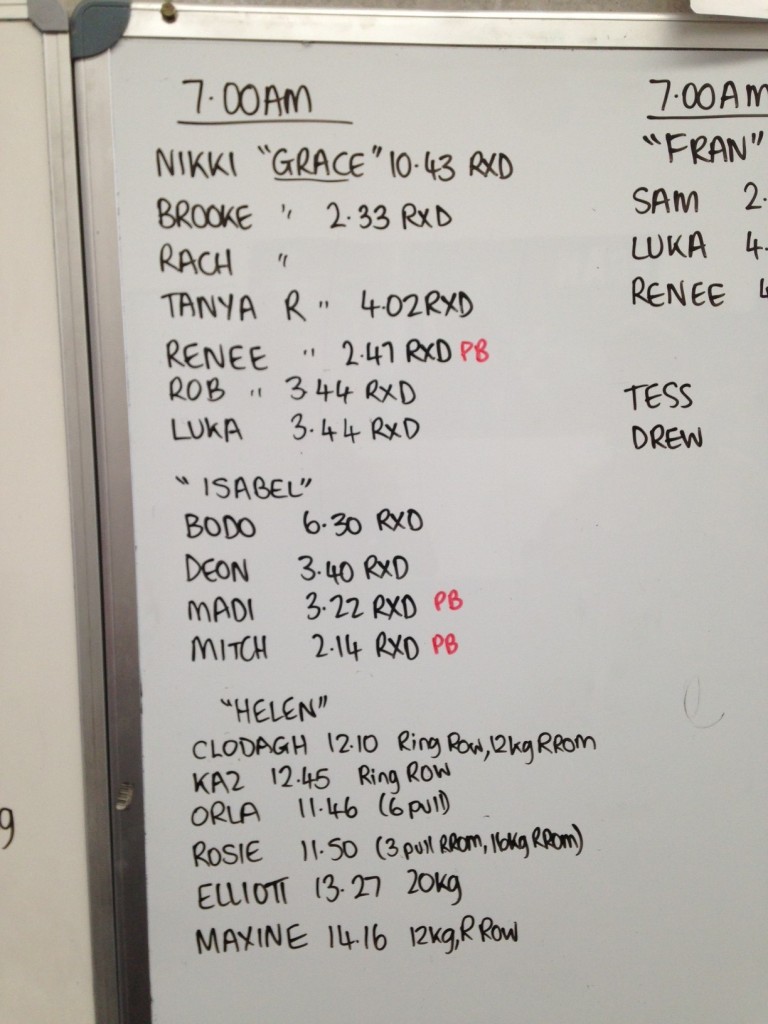 7.00AM
NIKKI "GRACE" 10.43 RXD
BROOKE " 2.33 RXD
RACH "
TANYA R " 4.02 RXD
RENEE " 2.47 RXD PB
ROB " 3.44 RXD
LUKA 3.44 RXD
"ISABEL"
BODO 6.30 RXD
DEON 3.40 RXD
MADI 3.22 RXD PB
MITCH 2.14 RXD PB
"HELEN"
CLODAGH 12.10 Ring Row, 12kg RROM
KAZ 12.45 Ring ROW
ORLA 11.46 (6 pull)
ROSIE 11.50 (3 pull RROM, 16kg RROM)
ELLIOTT 13.27 20kg
MAXINE 14.16 12kg, R ROW
7.00AM
"FRAN"
SAM 2.
LUKA 4.
RENEE
TESS
DREW
9